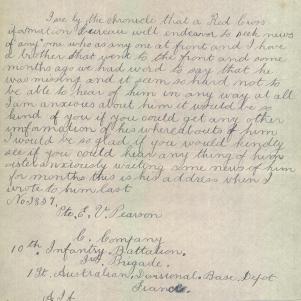 I see by the chronicle that a Red Cross
information Bureau will endeavor to seek news
of any one who as any one at front and I have
a brother that went to the front and some
months ago we had word to say that he
was missing and it seem so hard not to
be able to hear of him in any way at all
I am anxious about him it would be so
kind of you if you could get any other
infamation of his whereabouts of him
I would be so glad if you would kindly
see if you could hear any thing of him
sister anxiously waiting some news of him
for months this is his address when I
wrote to him last
No. 3837.
Pte. E. V. Pearson
C. Company
10th Infantry Battalion.
3rd Brigade.
1st. Australian Divisional Base Depot
France.
A.I.F.